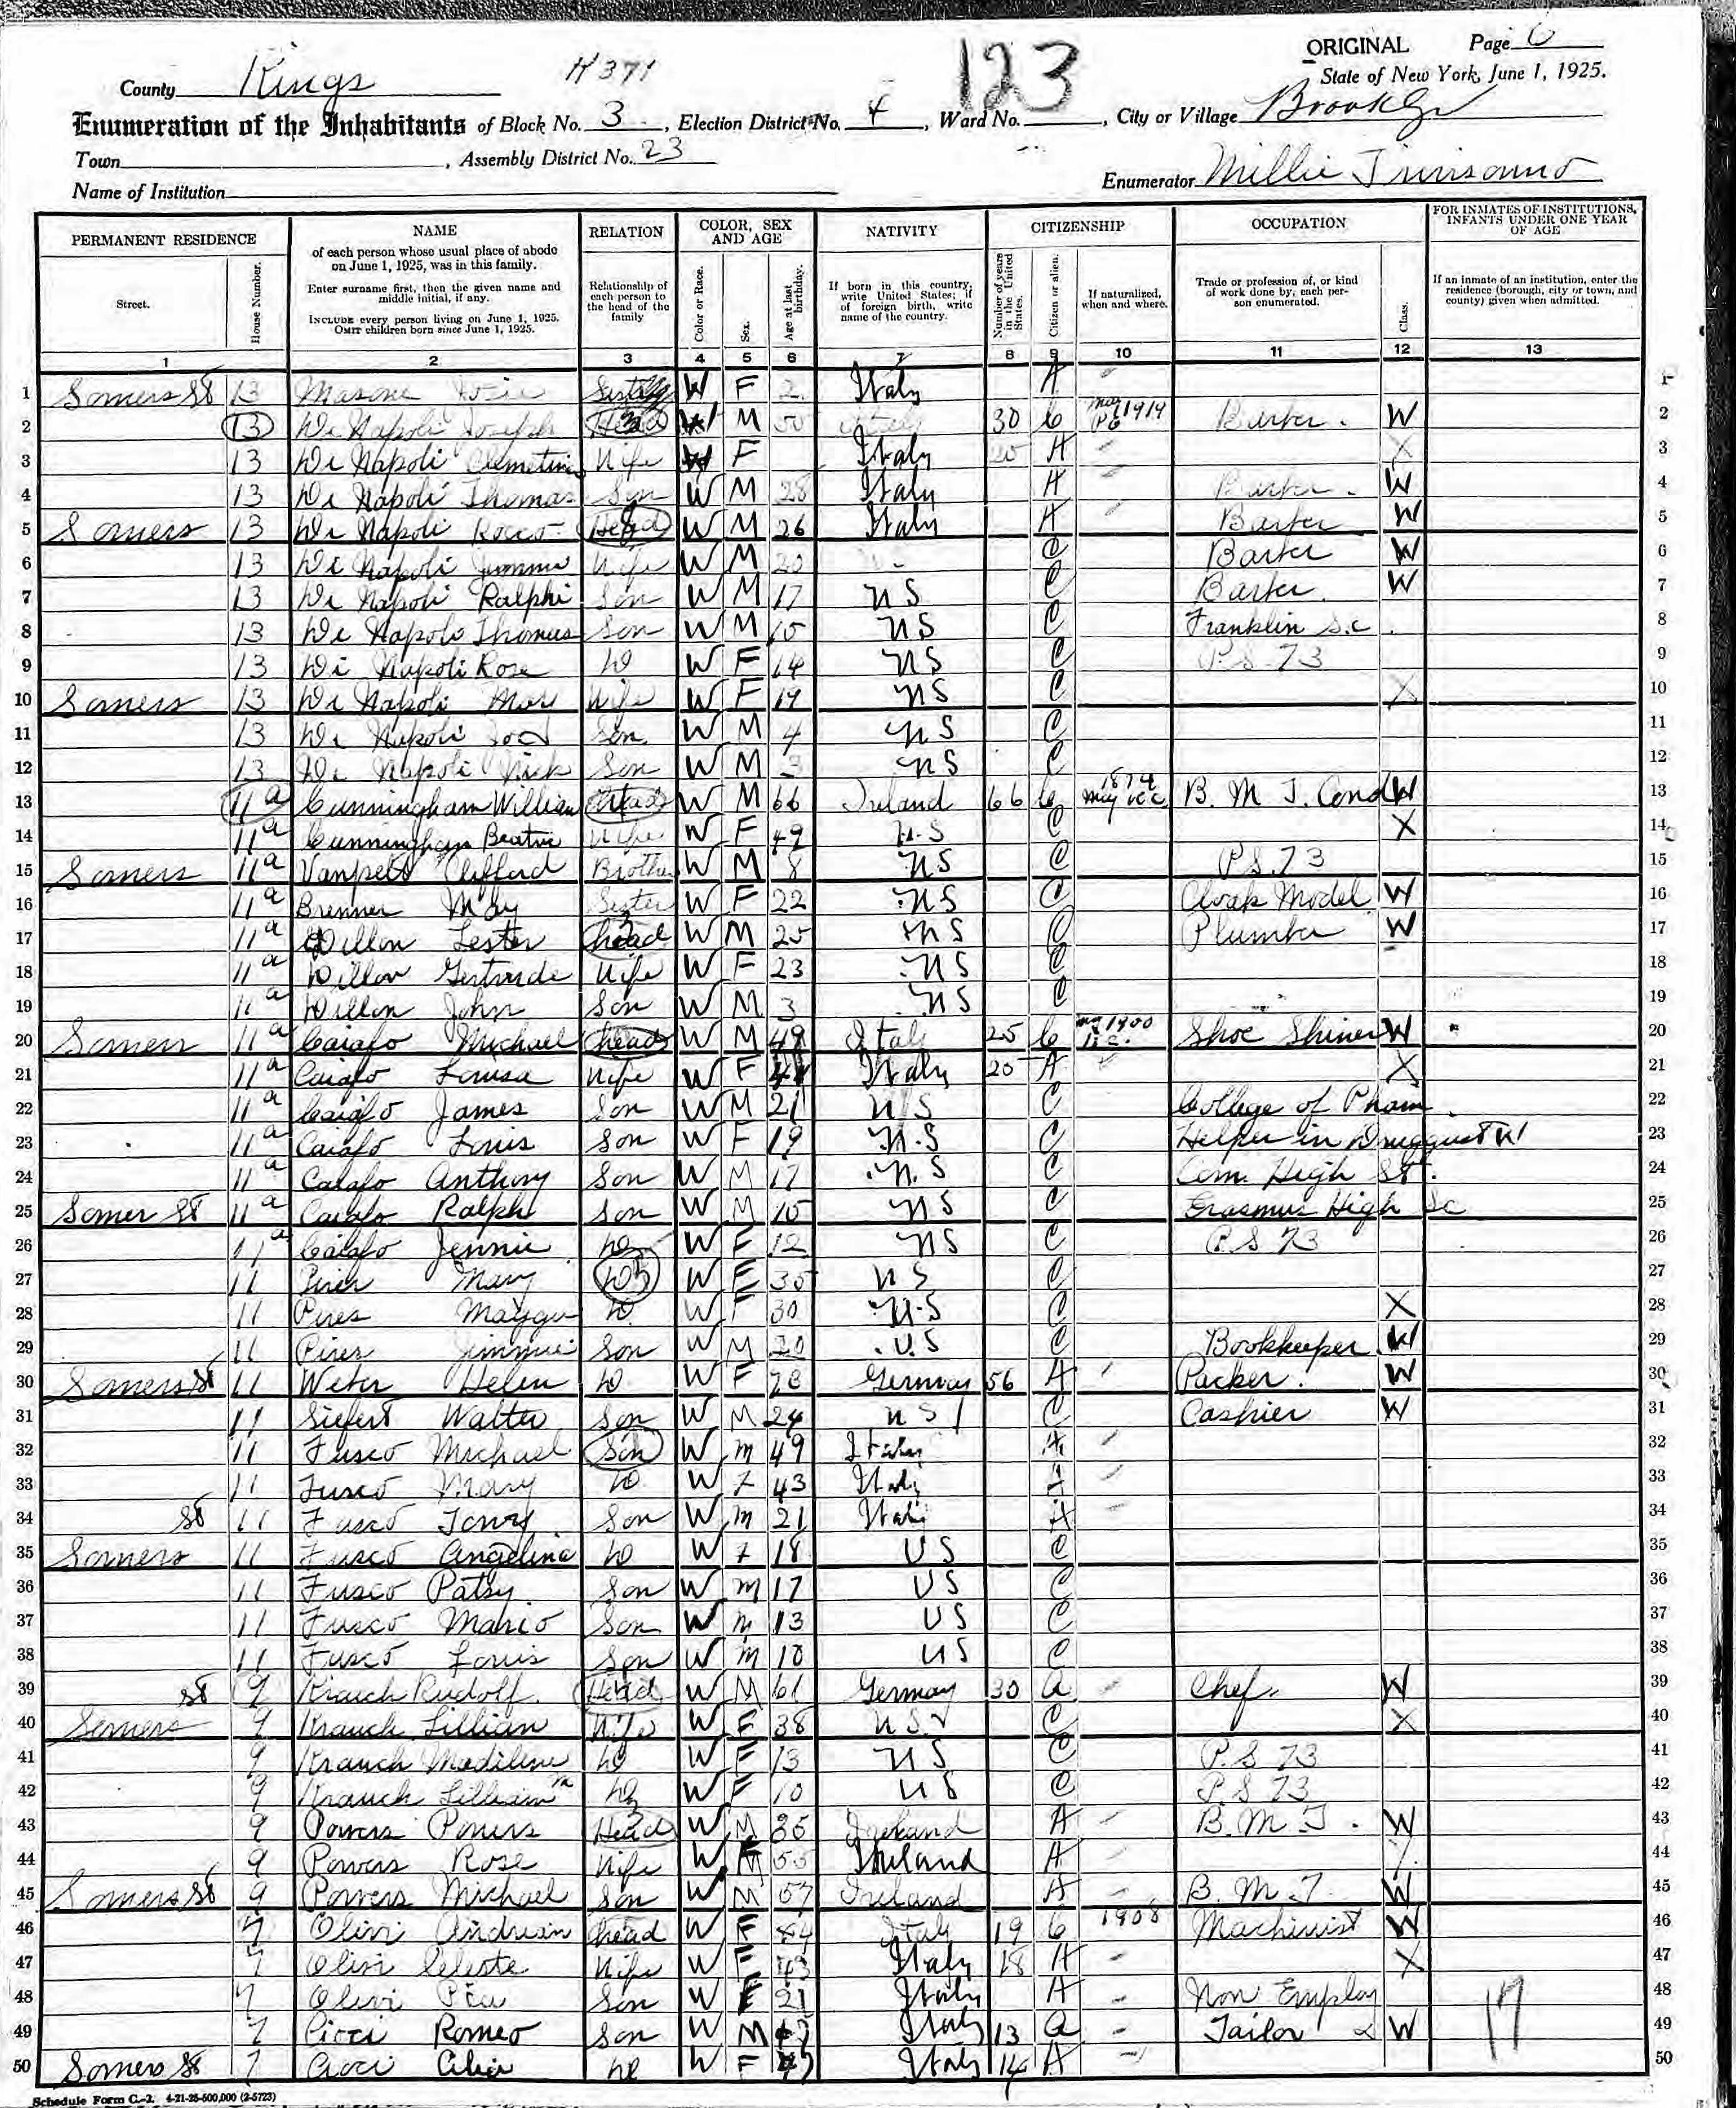 ORIGINAL Page 6
County Kings H371 123 State of New York, June 1, 1925.
Enumeration of the Inhabitants of Block No. 3, Election District No. 4, Ward No. , City or Village Brooklyn
Town , Assembly District No. 23
Name of Institution Enumerator Millie
PERMANENT RESIDENCE NAME RELATION COLOR, SEX AND AGE NATIVITY CITIZENSHIP OCCUPATION FOR INMATES OF INSTITUTIONS, INFANTS UNDER ONE YEAR OF AGE
Street. House Number. of each person whose usual place of abode on June 1, 1925, was in this family. Enter surname first, then the given name and middle initial, if any. INCLUDE every person living on June 1, 1925. OMIT children born since June 1, 1925. Relationship of each person to the head of the family Color or Race. Sex. Age at last birthday. If born in this country, write United States; if of foreign birth, write name of the country. Number of years in the United States. Citizen or alien. If naturalized, when and where. Trade or profession of, or kind of work done by, each person enumerated. Class. If an inmate of an institution, enter the residence (borough, city or town, and county) given when admitted.
1 2 3 4 5 6 7 8 9 10 11 12 13
1 Somers St 13 Masone Josie W F 2 Italy A 1
2 13 Di Napoli Joseph Head W M 50 30 C 1919 Barber. W 2
3 13 Di Napoli Wife W F Italy 20 A X 3
4 13 Di Napoli Thomas Son W M 28 Italy A Barber. W 4
5 Somers 13 Di Napoli Rocco Head W M 26 Italy A Barber W 5
6 13 Di Napoli Jimmie Wife W M 20 C Barber W 6
7 13 Di Napoli Ralphi Son W M 17 US C Barber. W 7
8 13 Di Napoli Thomas Son W M 15 US C Franklin S.C. 8
9 13 Di Napoli Rose D W F 14 US C P.S. 73 9
10 Somers 13 Di Napoli May Wife W F 19 US C X 10
11 13 Di Napoli Joe Son W M 4 US C 11
12 13 Di Napoli Nick Son W M 3 US C 12
13 11a Cunningham William Head W M 66 Ireland 66 C 1874 B. M. T. Cond W 13
14 11a Cunningham Beatrice Wife W F 49 U.S C X 14
15 Somers 11a Vanpelt Clifford Brother W M 8 US C P.S. 73 15
16 11a Brenner May Sister W F 22 US C Cloak Model W 16
17 11a Dillon Lester head W M 25 US C Plumber W 17
18 11a Dillon Gertrude Wife W F 23 US C 18
19 11a Dillon John Son W M 3 US C 19
20 Somers 11a Caiafo Michael head W M 49 Italy 25 C 1900 Shoe Shiner W 20
21 11a Caiafo Louisa Wife W F Italy 20 A X 21
22 11a Caiafo James Son W M 21 US C College of Pharm. 22
23 11a Caiafo Louis Son W F 19 U.S C Helper in Druggist W 23
24 11a Caiafo Anthony Son W M 17 U.S C Com. High St. 24
25 Somer St 11a Caiafo Ralph Son W M 15 US C Erasmus High Sc 25
26 11a Caiafo Jennie D W F 12 US C P.S 73 26
27 11 Pires Mary D W F 35 US C 27
28 11 Pires Maggie D W F 30 U.S C X 28
29 11 Pires Jimmie Son W M 20 U.S C Bookkeeper W 29
30 Somers St 11 Weber Helen D W F 78 Germany 56 A Packer. W 30
31 11 Siefert Walter Son W M 24 US C Cashier W 31
32 11 Fusco Michael Son W m 49 Italy A 32
33 11 Fusco Mary D W F 43 Italy A 33
34 St 11 Fusco Tony Son W m 21 Itali A 34
35 Somers 11 Fusco Angelina D W F 18 US C 35
36 11 Fusco Patsy Son W m 17 US C 36
37 11 Fusco Mario Son W m 13 US C 37
38 11 Fusco Louis Son W m 10 US C 38
39 St 9 Krauch Rudolf Head W M 61 Germany 30 A Chef. W 39
40 Somers 9 Krauch Lillian Wife W F 38 US C X 40
41 9 Krauch Madiline D W F 13 US C P.S 73 41
42 9 Krauch Lillian D W F 10 US C P.S 73 42
43 9 Powers Head W M Ireland A B.M.T. W 43
44 9 Powers Rose Wife W 55 Ireland A 44
45 Somers St 9 Powers Michael Son W M 57 Ireland A B.M.T W 45
46 7 Olivi Andrian head W F 44 Italy 19 C 1908 Machinist W 46
47 7 Olivi Celeste Wife W F 43 Italy 18 A X 47
48 7 Olivi Pia Son W F 21 Italy A Non Employ 48
49 7 Cicci Romeo Son W M Italy 13 A Tailor W 17 49
50 Somers St 7 Cicci D W F Italy 14 A 50
Schedule Form C.-2. 4-21-25-500,000 (2-5723)